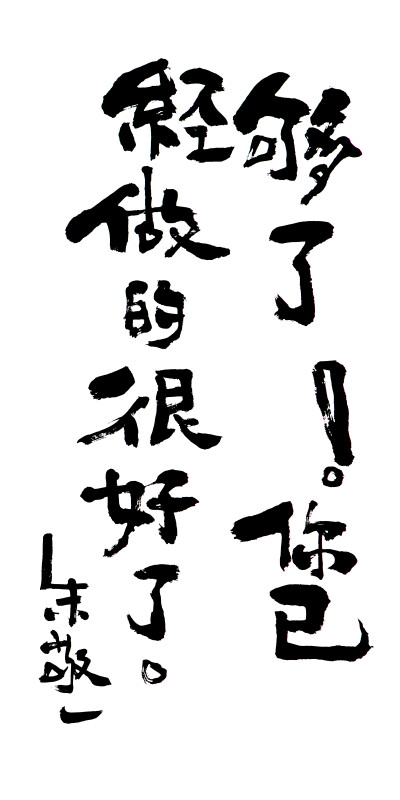 够了！你已
经做的很好了。
朱敬一